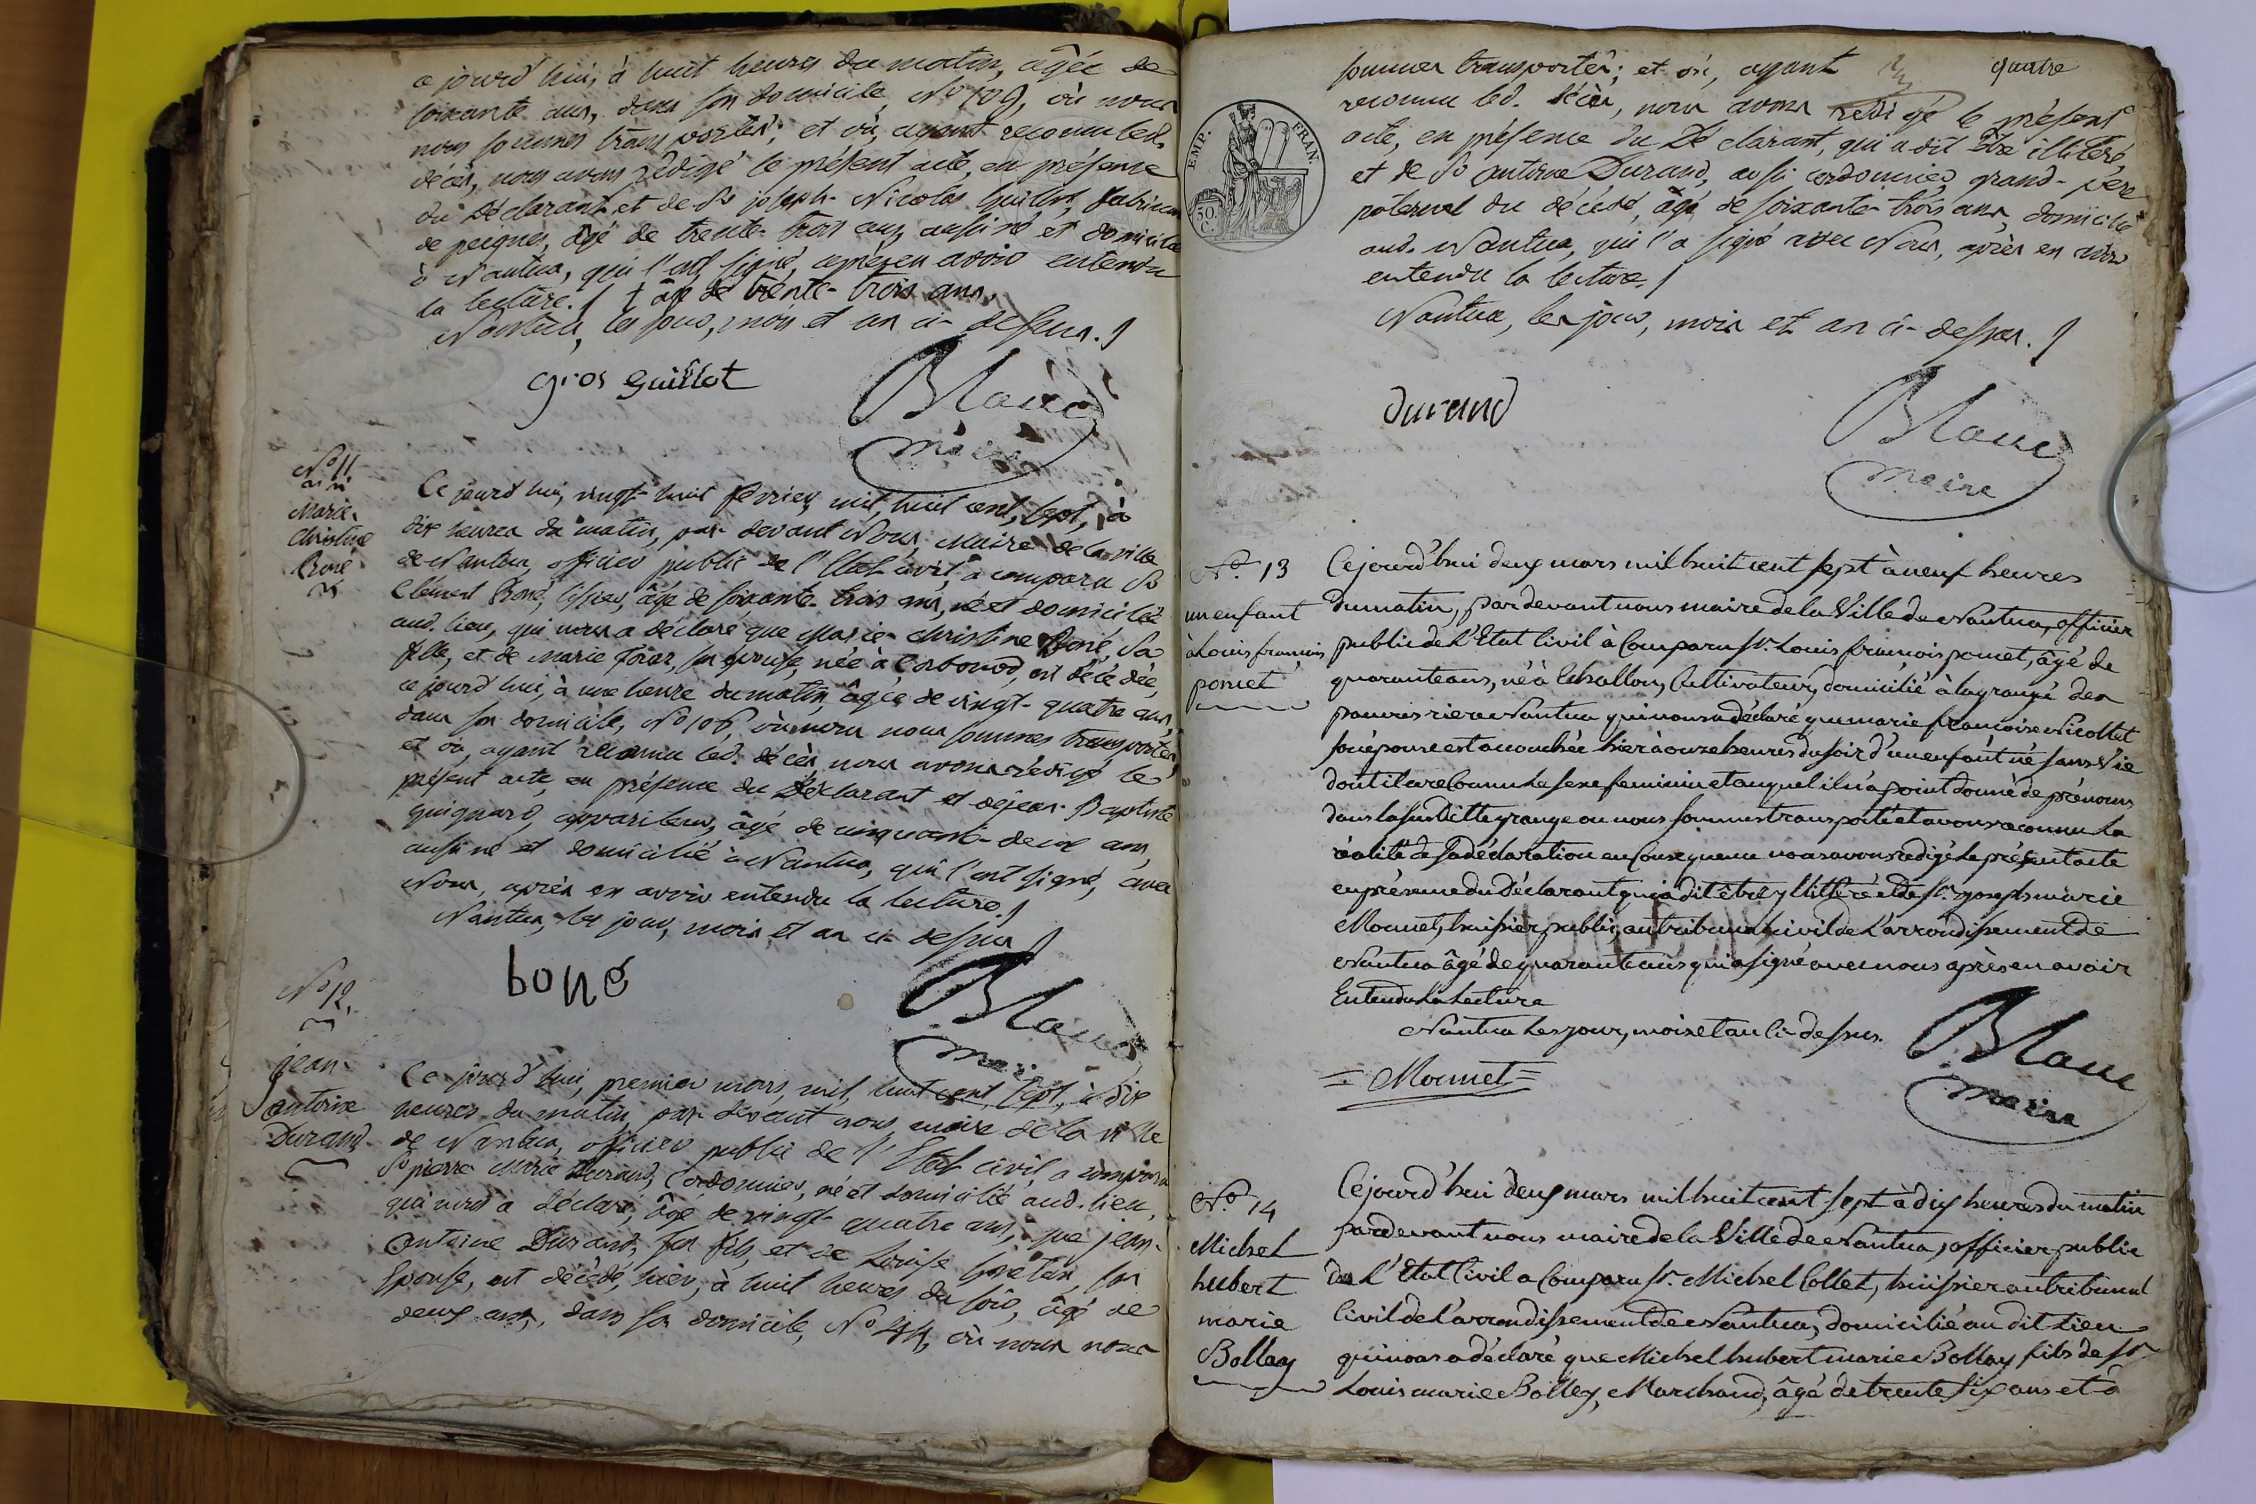 ce jourd'hui, à huit heures du matin, âgée de
soixante ans, dans son domicile, N° 109, où nous
nous sommes transportés; et où, ayant reconnu led.
décès, nous avons rédigé le présent acte, en présence
du Déclarant, et de Sr joseph-Nicolas Guillot, fabricant
de peignes, âgé de trente-trois ans, aussi né et domicilié
à Nantua, qui l'ont signé, après en avoir entendu
la lecture. / † âgé de trente-trois ans.
Nantua, les jour, mois et an ci-dessus. /
gros guillot
Blanc
maire
N° 11
Marie-
Christine
Boné
Ce jourd'hui, vingt-huit février, mil, huit cent, sept, à
dix heures du matin, par-devant Nous, Maire de la ville
de Nantua, officier public de l'Etat civil, a comparu Sr
Clément Boné, âgé de soixante-trois ans, né et domicilié
aud. lieu, qui nous a déclaré que Marie-Christine Boné, sa
fille, et de Marie son épouse, née à est décédée,
ce jourd'hui, à une heure du matin, âgée de vingt-quatre ans,
dans son domicile, N° 106, où nous nous sommes transportés,
et où, ayant reconnu led. décès, nous avons rédigé le
présent acte, en présence du Déclarant et de jean-Baptiste
guignard, appariteur, âgé de cinquante-deux ans,
aussi né et domicilié à Nantua, qui l'ont signé, avec
Nous, après en avoir entendu la lecture. /
Nantua, les jour, mois et an ci-dessus /
boné
Blanc
maire
N° 12.
jean-
antoine
Durand
Ce jourd'hui, premier mars, mil, huit cent, sept, à dix
heures du matin, par-devant nous, maire de la ville
de Nantua, officier public de l'Etat civil, a comparu
Sr pierre-Marie Durand, Cordonnier, né et domicilié aud. lieu,
qui nous a déclaré, âgé de vingt-quatre ans, que jean-
antoine Durand, son fils, et de Louise son
Epouse, est décédé, hier, à huit heures du soir, âgé de
deux ans, dans son domicile, N° 44, où nous nous
quatre
EMP. FRAN.
50 C.
sommes transportés; et où, ayant
reconnu led. décès, nous avons rédigé le présent
acte, en présence du Déclarant, qui a dit être illitéré,
et de Sr antoine Durand, aussi cordonnier, grand-père
paternel du décédé, âgé de soixante-trois ans, domicilié
aud. Nantua, qui l'a signé avec Nous, après en avoir
entendu la lecture. /
Nantua, les jour, mois et an ci-dessus. /
durand
Blanc
maire
N° 13
un enfant
à Louis françois
pomet
Cejourd'hui deux mars mil huit cent sept à neuf heures
du matin, par devant nous maire de la Ville de Nantua, officier
public de L'Etat Civil à Comparu Sr. Louis françois pomet, âgé de
quarante ans, né à Echallon, Cultivateur, domicilié à la grange des
pauvres riere Nantua qui nous a déclaré que marie françoise Nicollet
son épouse est accouchée hier à onze heures du soir d'un enfant né sans Vie
dont il a reConnu Le sexe feminin et auquel il n'a point donné de prénoms
dans la susditte grange ou nous sommes transporté et avons reconnu La
réalité de sa déclaration en Consequence nous avons redigé Le présent acte
en présence du Déclarant qui a dit être yllittéré et de Sr. joseph marie
Mounet, huissier public au tribunal civil de L'arrondissement de
Nantua âgé de quarante ans qui a signé avec nous après en avoir
Entendu La Lecture
Nantua Les jour, mois et an Ci-dessus.
= Mounet =
Blanc
maire
N° 14
Michel
hubert
marie
Bolley
Cejourd'hui deux mars mil huit cent sept à dix heures du matin
pardevant nous maire de la Ville de Nantua, officier public
de L'Etat Civil a Comparu Sr. Michel Collet, huissier au tribunal
Civil de L'arrondissement de Nantua, domicilié au dit Lieu
qui nous a déclaré que Michel hubert marie Bolley fils de Sr
Louis marie Bolley, Marchand, âgé de trente six ans et à